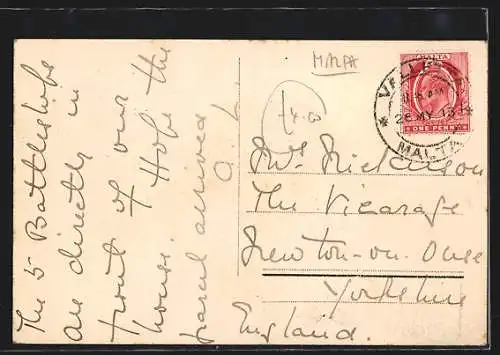 The 5 Battleships
are directly in
front of our
house. Hope the
parcel arrived
a. L.
MALTA
(4.00
MALTA
ONE PENNY
VALLETTA
26 MY 13
MALTA
Mrs Dickinson
The Vicarage
Newton-on-Ouse
Yorkshire
England.